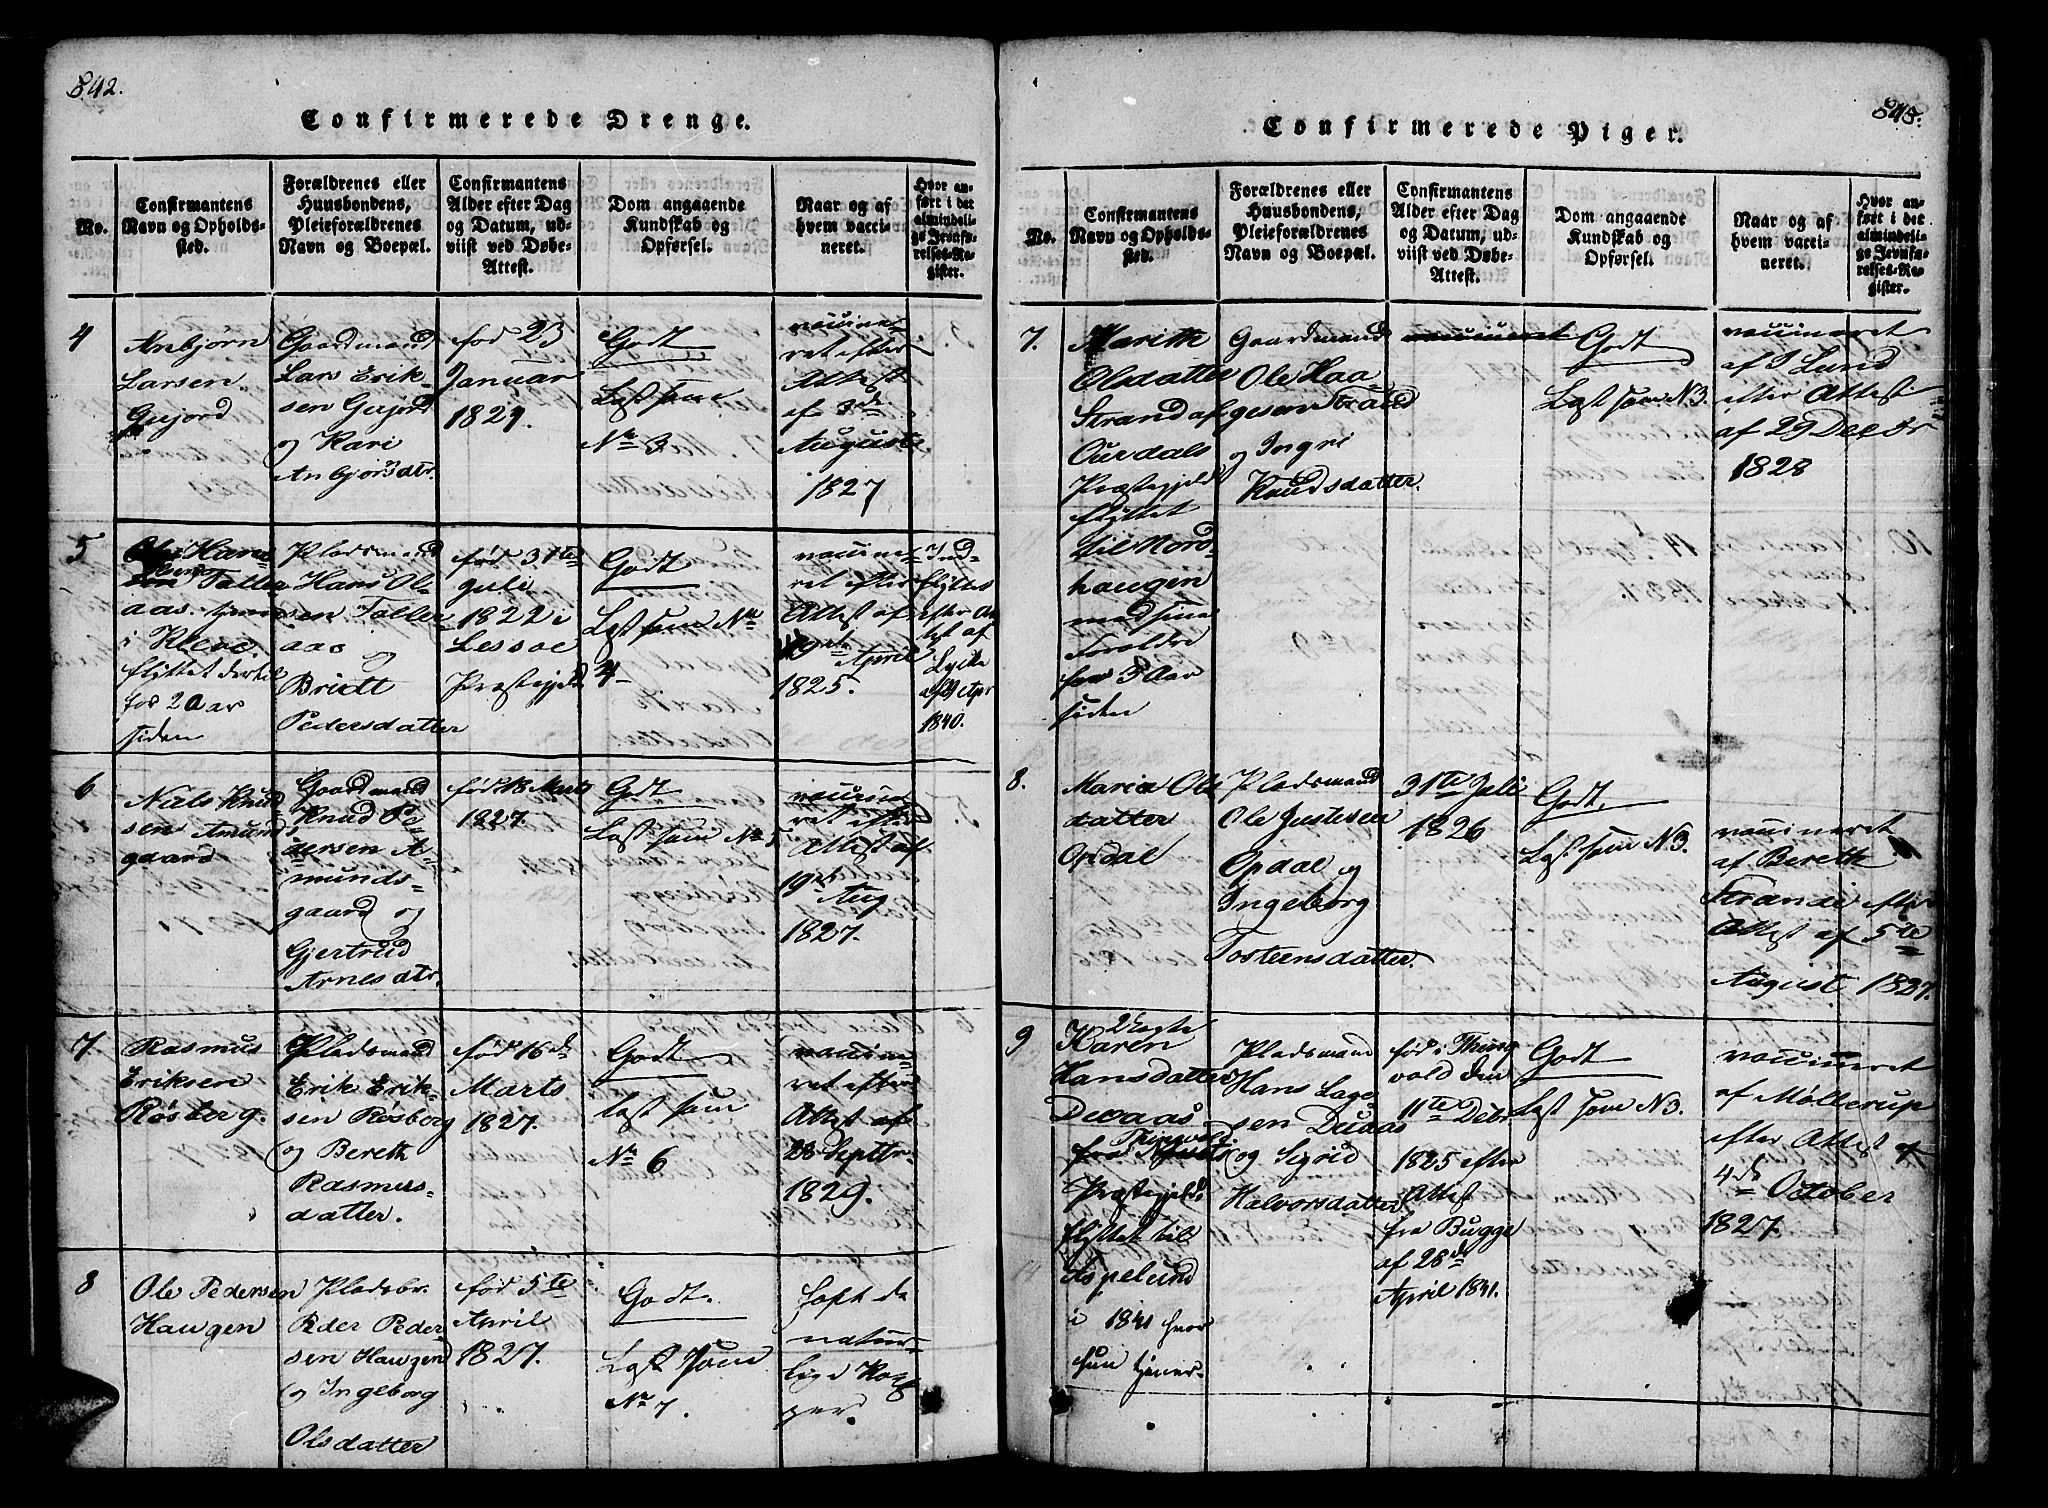 842.
Confirmerede Drenge.
No.
Confirmantens
Navn og Opholds-
sted.
Forældrenes eller
Huusbondens,
Pleieforældrenes
Navn og Boepæl.
Confirmantens
Alder efter Dag
og Datum, ud-
viist ved Døbe-
Attest.
Dom angaaende
Kundskab og
Opførsel.
Naar og af
hvem vacci-
neret.
Hvor an-
ført i det
almindeli-
ge Jevnfø-
relses-Re-
gister.
4
Anbjørn
Larsen
Gujord
Gaardmand
Lars Erik-
sen Gujord
og Kari
Anbjorsdtr.
fød 23
Januar
1827.
Godt
Læst som
No 3
vaccine-
ret efter
Attest
af 3de
Auguste
1827
5
Ole Hans
Taller
aas. tjener
i Kleve.
flyttet dertil
for 2 Aar
siden
Pladsmand
Hans Ol-
sen Taller-
aas og
Bridt
Pedersdatter
fød 31te
Juli
1822 i
Lessøe
Præstegjeld
Godt
Læst som No
4
vaccine-
ret efter
Attest af
19de April
1825.
Ind-
flyttet
efter At-
test af
Lycke
af 29 Apr
1840.
6
Niels Knud
sen Amunds
gaard
Gaardmand
Knud Pe-
dersen A-
munds-
gaard og
Gjertrud
Arnesdtr.
fød 18 Marts
1827.
Godt
Læst som No 5
vaccine-
ret efter
Attest af
19de Aug
1827.
7
Rasmus
Eriksen
Røsberg.
Pladsmand
Erik Erik-
sen Røsberg
og Bereth
Rasmus-
datter.
fød 16de
Marts
1827.
Godt
læst som
No 6
vaccine-
ret efter
Attest af
28 Septbr.
1829.
8
Ole Pedersen
Haugen
Pladsbr.
Peder Peder-
sen Haugen
og Ingeborg
Olsdatter
fød 5te
April
1827.
Godt.
Læst som
No 7.
havt de
natur-
lige Kop-
per.
843.
Confirmerede Piger.
No.
Confirmantens
Navn og Opholds-
sted.
Forældrenes eller
Huusbondens,
Pleieforældrenes
Navn og Boepæl.
Confirmantens
Alder efter Dag
og Datum, ud-
viist ved Døbe-
Attest.
Dom angaaende
Kundskab og
Opførsel.
Naar og af
hvem vacci-
neret.
Hvor an-
ført i det
almindeli-
ge Jevnfø-
relses-Re-
gister.
7.
Marith
Olsdatter
Strand af
Ourdals
Præstegjeld
flyttet
til Nord-
haugen
med sine
Forældre
for 3 Aar
siden
Gaardmand
Ole Haa-
gesen Strand
og Ingri
Knudsdatter.
vaccineret
Godt
Læst som N 3.
vaccineret
af J Lund
efter Attest
af 29 Decbr
1828
8.
Maria Ols
datter
Opdal
Pladsmand
Ole Justesen
Opdal og
Ingeborg
Tosteensdatter.
31te Juli
1826
Godt.
Læst som N 3.
vaccineret
af Bereth
Strande efter
Attest af 5te
August 1827.
9
Karen
Hansdatter
Duaas
fra Thingvold
Præstegjeld,
flyttet til
Aspelund
i 1841 hvor
hun tjener.
Pladsmand
Hans Lage-
sen Duaas
og Sigrid
Halvorsdatter
fød i Thing
vold den
11te Debr
1825 efter
Attest
fra Bugge
af 28de
April 1841.
Godt
Læst som N 3.
vaccineret
af Møllerup
efter Attest af
4de October
1827.